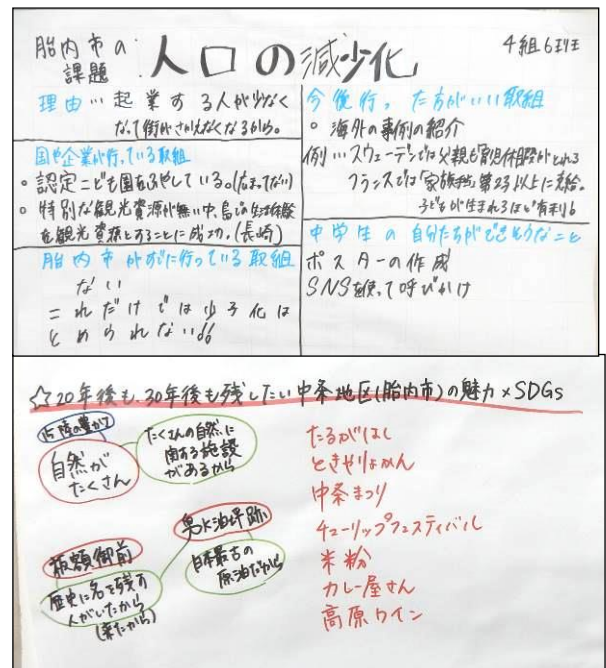 胎内市の
課題:人口の減少化
4組6班
理由…起業する人が少なく
なって街がさかえなくなるから。
国や企業が行っている取組
○認定こども園をふやしている。(広まってない)
○特別な観光資源が無い中、島での生活体験
を観光資源とすることに成功。(長崎)
胎内市がすでに行っている取組
ない
これだけでは少子化は
とめられない!!
今後行った方がいい取組
○海外の事例の紹介
例…スウェーデンでは父親も育児休暇がとれる
フランスでは「家族手当」第2子以上に支給。
子どもが生まれるほど有利
中学生の自分たちができそうなこと
ポスターの作成
SNSを使って呼びかけ
☆20年後も、30年後も残したい中条地区(胎内市)の魅力×SDGs
15 陸の豊かさ
自然が
たくさん
たくさんの自然に
関する施設
があるから
板額御前
歴史に名を残す
人がしたから
(来たから)
黒川油坪跡
日本最古の
原油だから
たるがはし
ときやりょかん
中条まつり
チューリップフェスティバル
米粉
カレー屋さん
高原ワイン